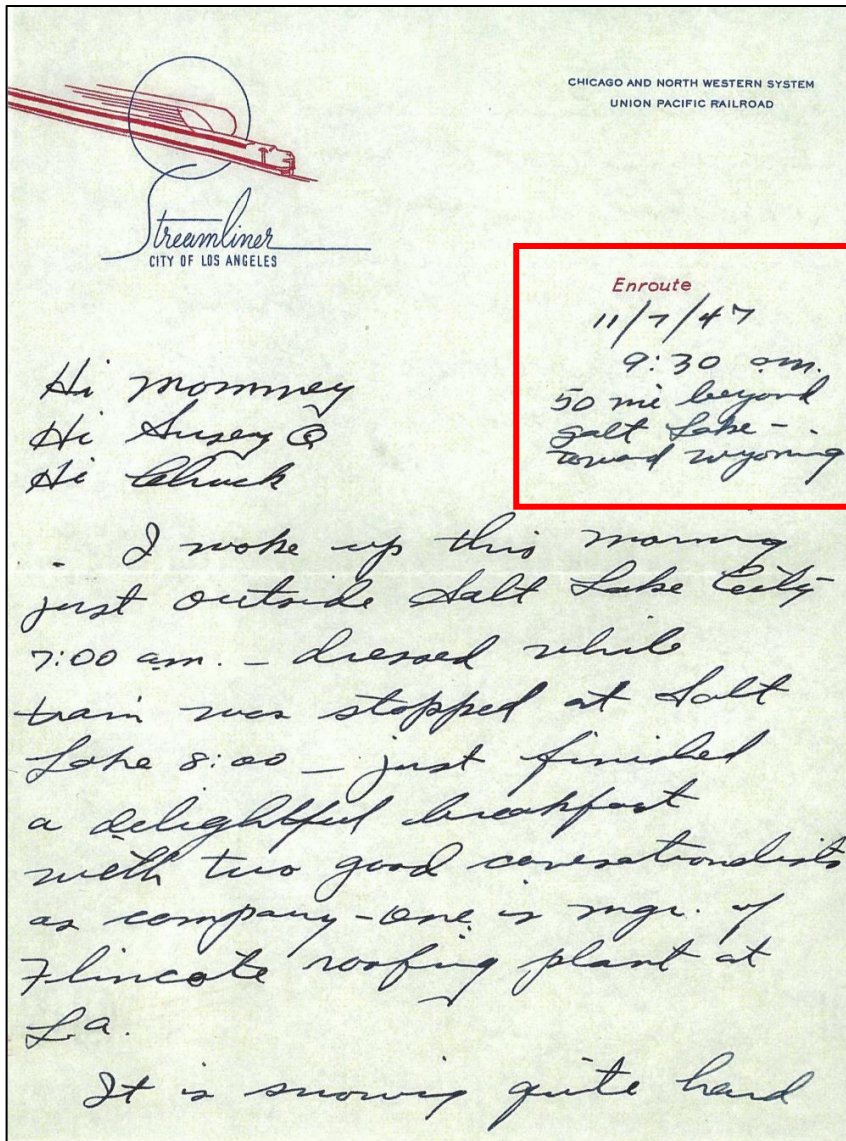 CHICAGO AND NORTH WESTERN SYSTEM
UNION PACIFIC RAILROAD
Streamliner
CITY OF LOS ANGELES
Enroute
11/7/47
9:30 am.
50 mi beyond
Salt Lake -
toward wyoming
Hi mommey
Hi Susey Q
Hi Chuck
I woke up this morning
just outside Salt Lake City
7:00 am. - dressed while
train was stopped at Salt
Lake 8:00 - just finished
a delightful breakfast
with two good conversationalists
as company - one is mgr. of
Flincote roofing plant at
La.
It is snowing quite hard